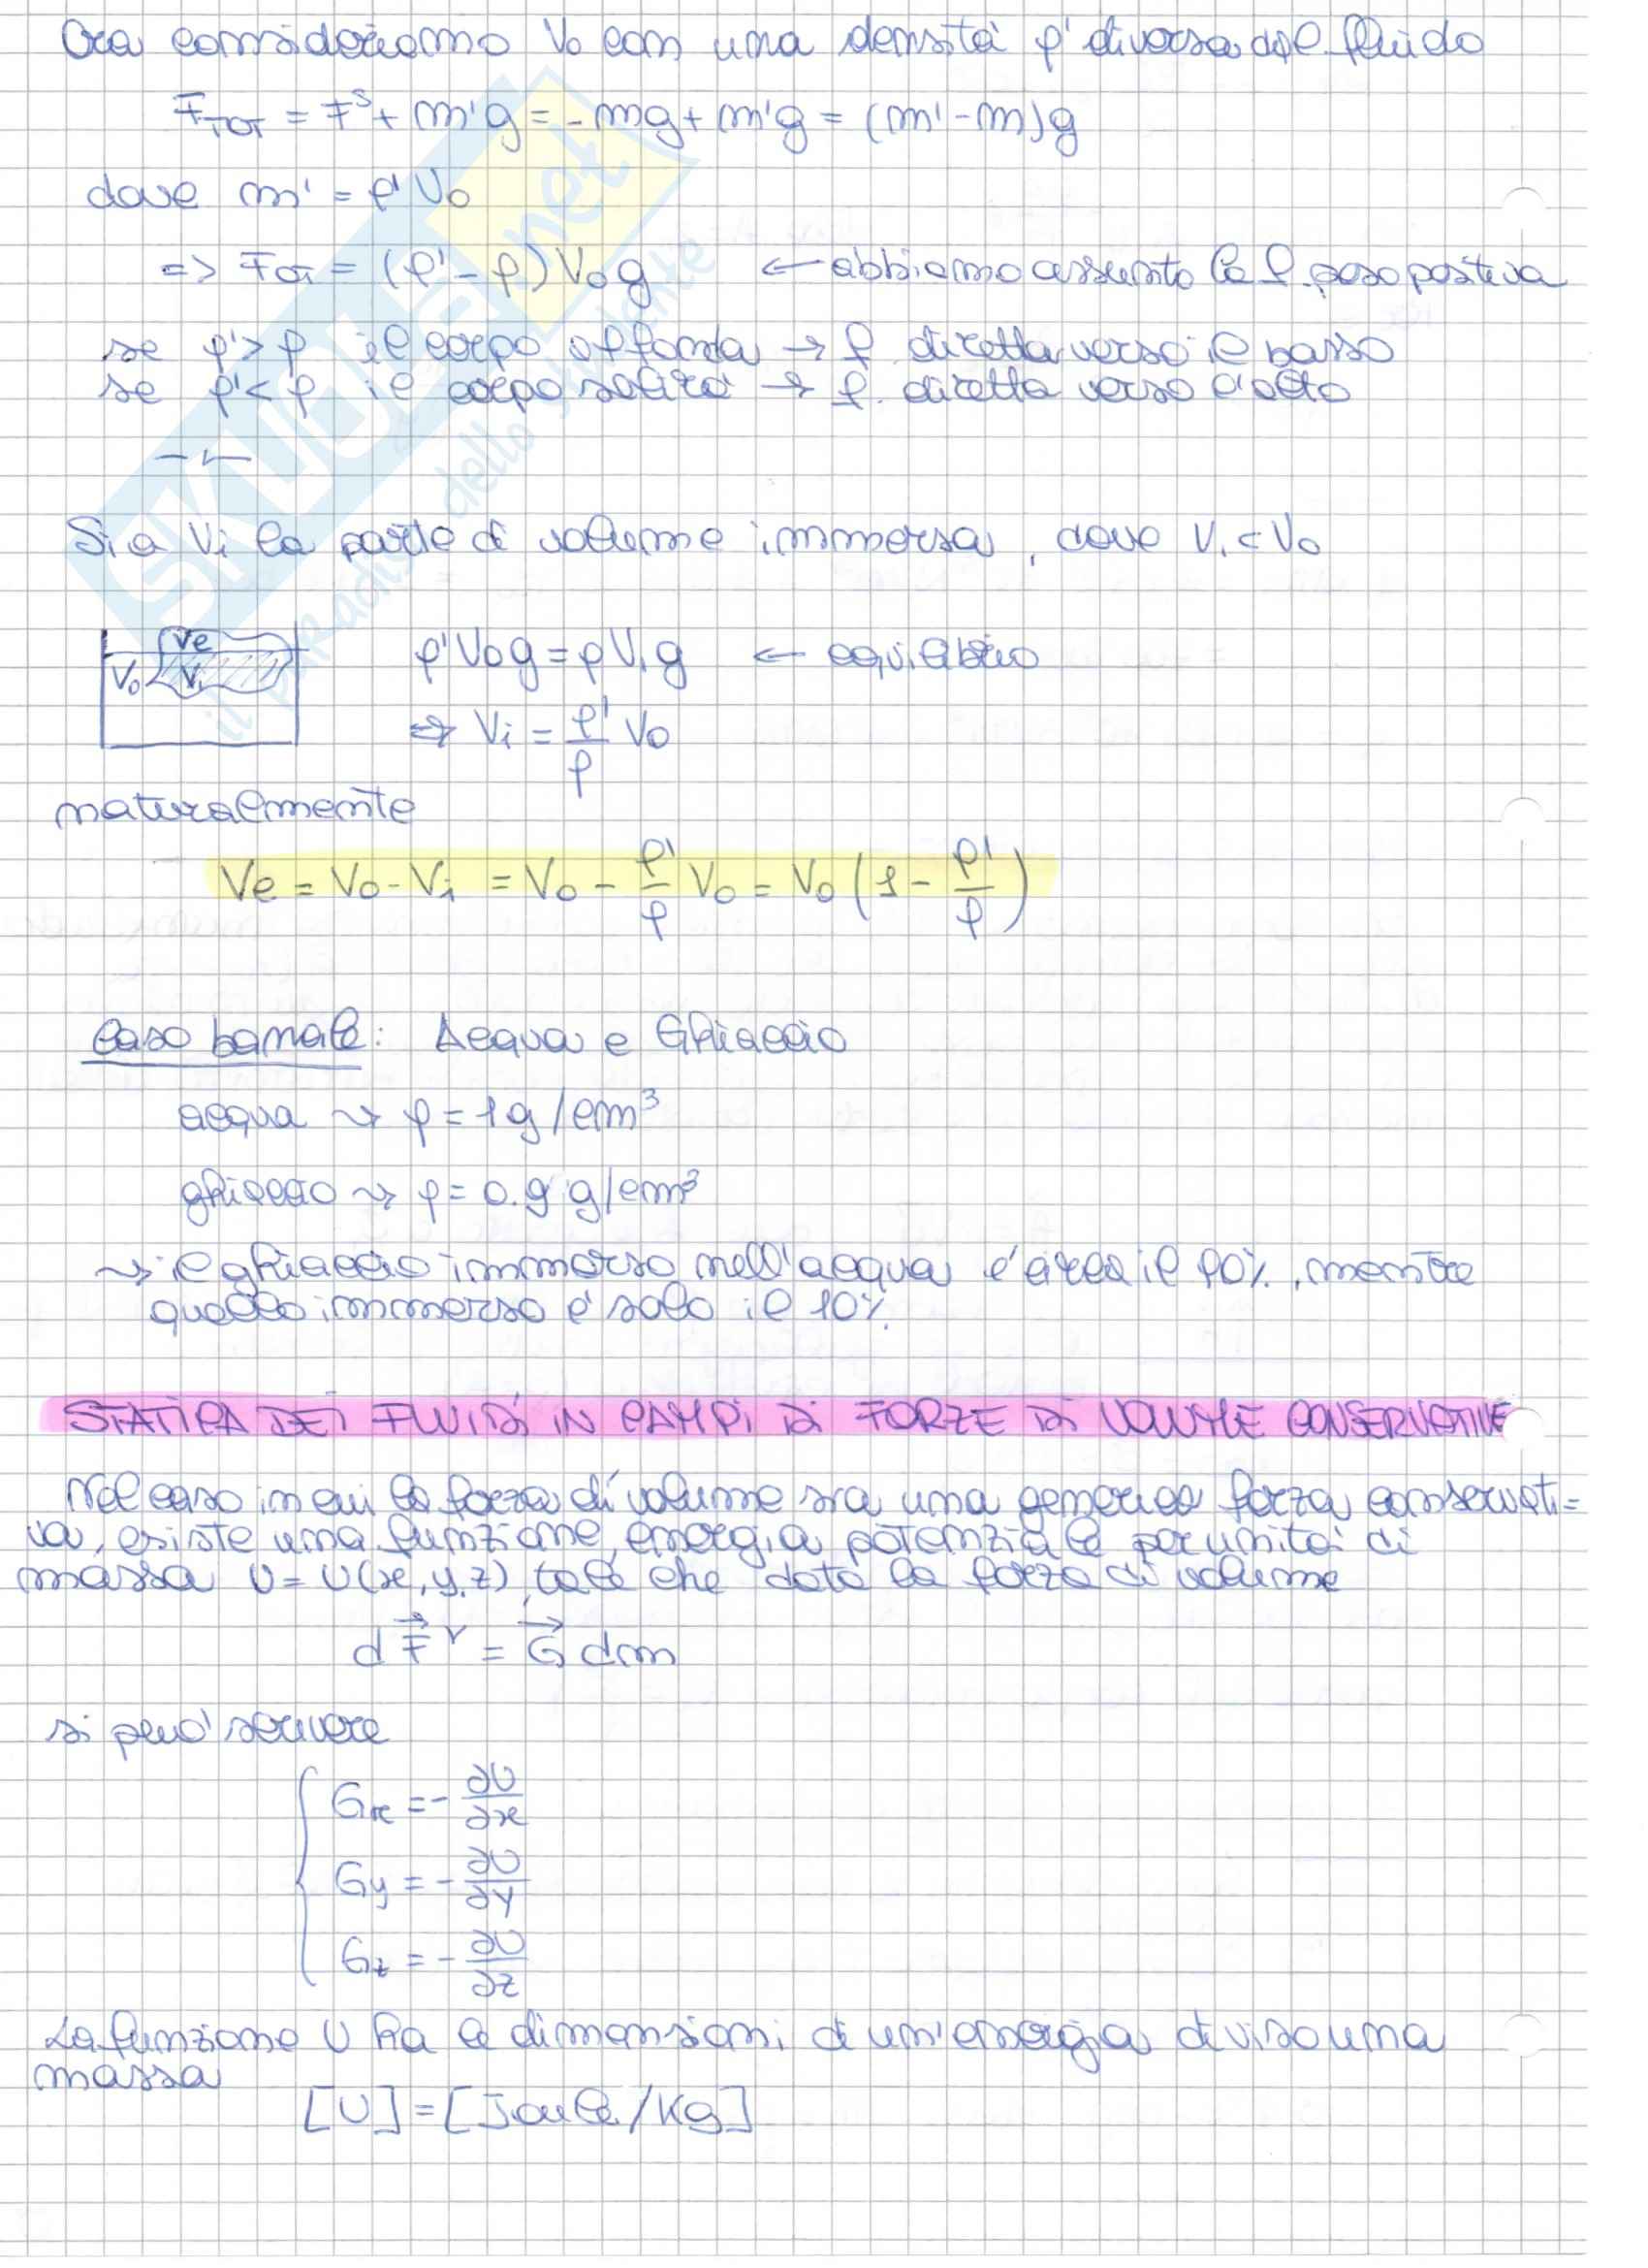 Ora consideriamo V₀ con una densità ρ' diversa dal fluido
F_TOT = F^S + m'g = -mg + m'g = (m'-m)g
dove m' = ρ'V₀
=> F_TOT = (ρ'-ρ)V₀g ← abbiamo assunto la f. peso positiva
se ρ'>ρ il corpo affonda → f. diretta verso il basso
se ρ'<ρ il corpo salirà → f. diretta verso l'alto
Sia Vi la parte di volume immersa, dove Vi<V₀
Ve
V₀ Vi
ρ'V₀g = ρVig ← equilibrio
⇒ Vi = ρ'/ρ V₀
naturalmente
Ve = V₀-Vi = V₀ - ρ'/ρ V₀ = V₀ (1 - ρ'/ρ)
Caso banale: Acqua e Ghiaccio
acqua ⤳ ρ = 1g/cm³
ghiaccio ⤳ ρ = 0.9 g/cm³
⤳ il ghiaccio immerso nell'acqua é circa il 90%, mentre
quello immerso é solo il 10%.
STATICA DEI FLUIDI IN CAMPI DI FORZE DI VOLUME CONSERVATIVE
Nel caso in cui la forza di volume sia una generica forza conservati=
va, esiste una funzione, energia potenziale per unità di
massa U = U(x,y,z), tale che data la forza di volume
dF⃗^V = G⃗ dm
si puó scrivere
Gx = - ∂U/∂x
Gy = - ∂U/∂y
Gz = - ∂U/∂z
La funzione U ha le dimensioni di un'energia diviso una
massa
[U] = [Joule/Kg]
SKUOLA.net
il paradiso dello studente